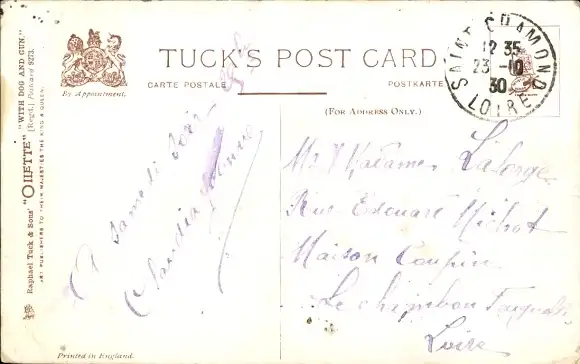 TUCK'S POST CARD
CARTE POSTALE
POSTKARTE
(FOR ADDRESS ONLY.)
By Appointment.
Raphael Tuck & Sons' "OILETTE" "WITH DOG AND GUN."
[Regd.] Postcard 9273.
ART PUBLISHERS TO THEIR MAJESTIES THE KING & QUEEN.
SAINT-CHAMOND
12 35
23 -10
30
LOIRE
A Samedi soir
Claudia
Mr & Madame Laforge
Rue Edouard
Maison Coupin
Le Chambon
Loire
Printed in England.